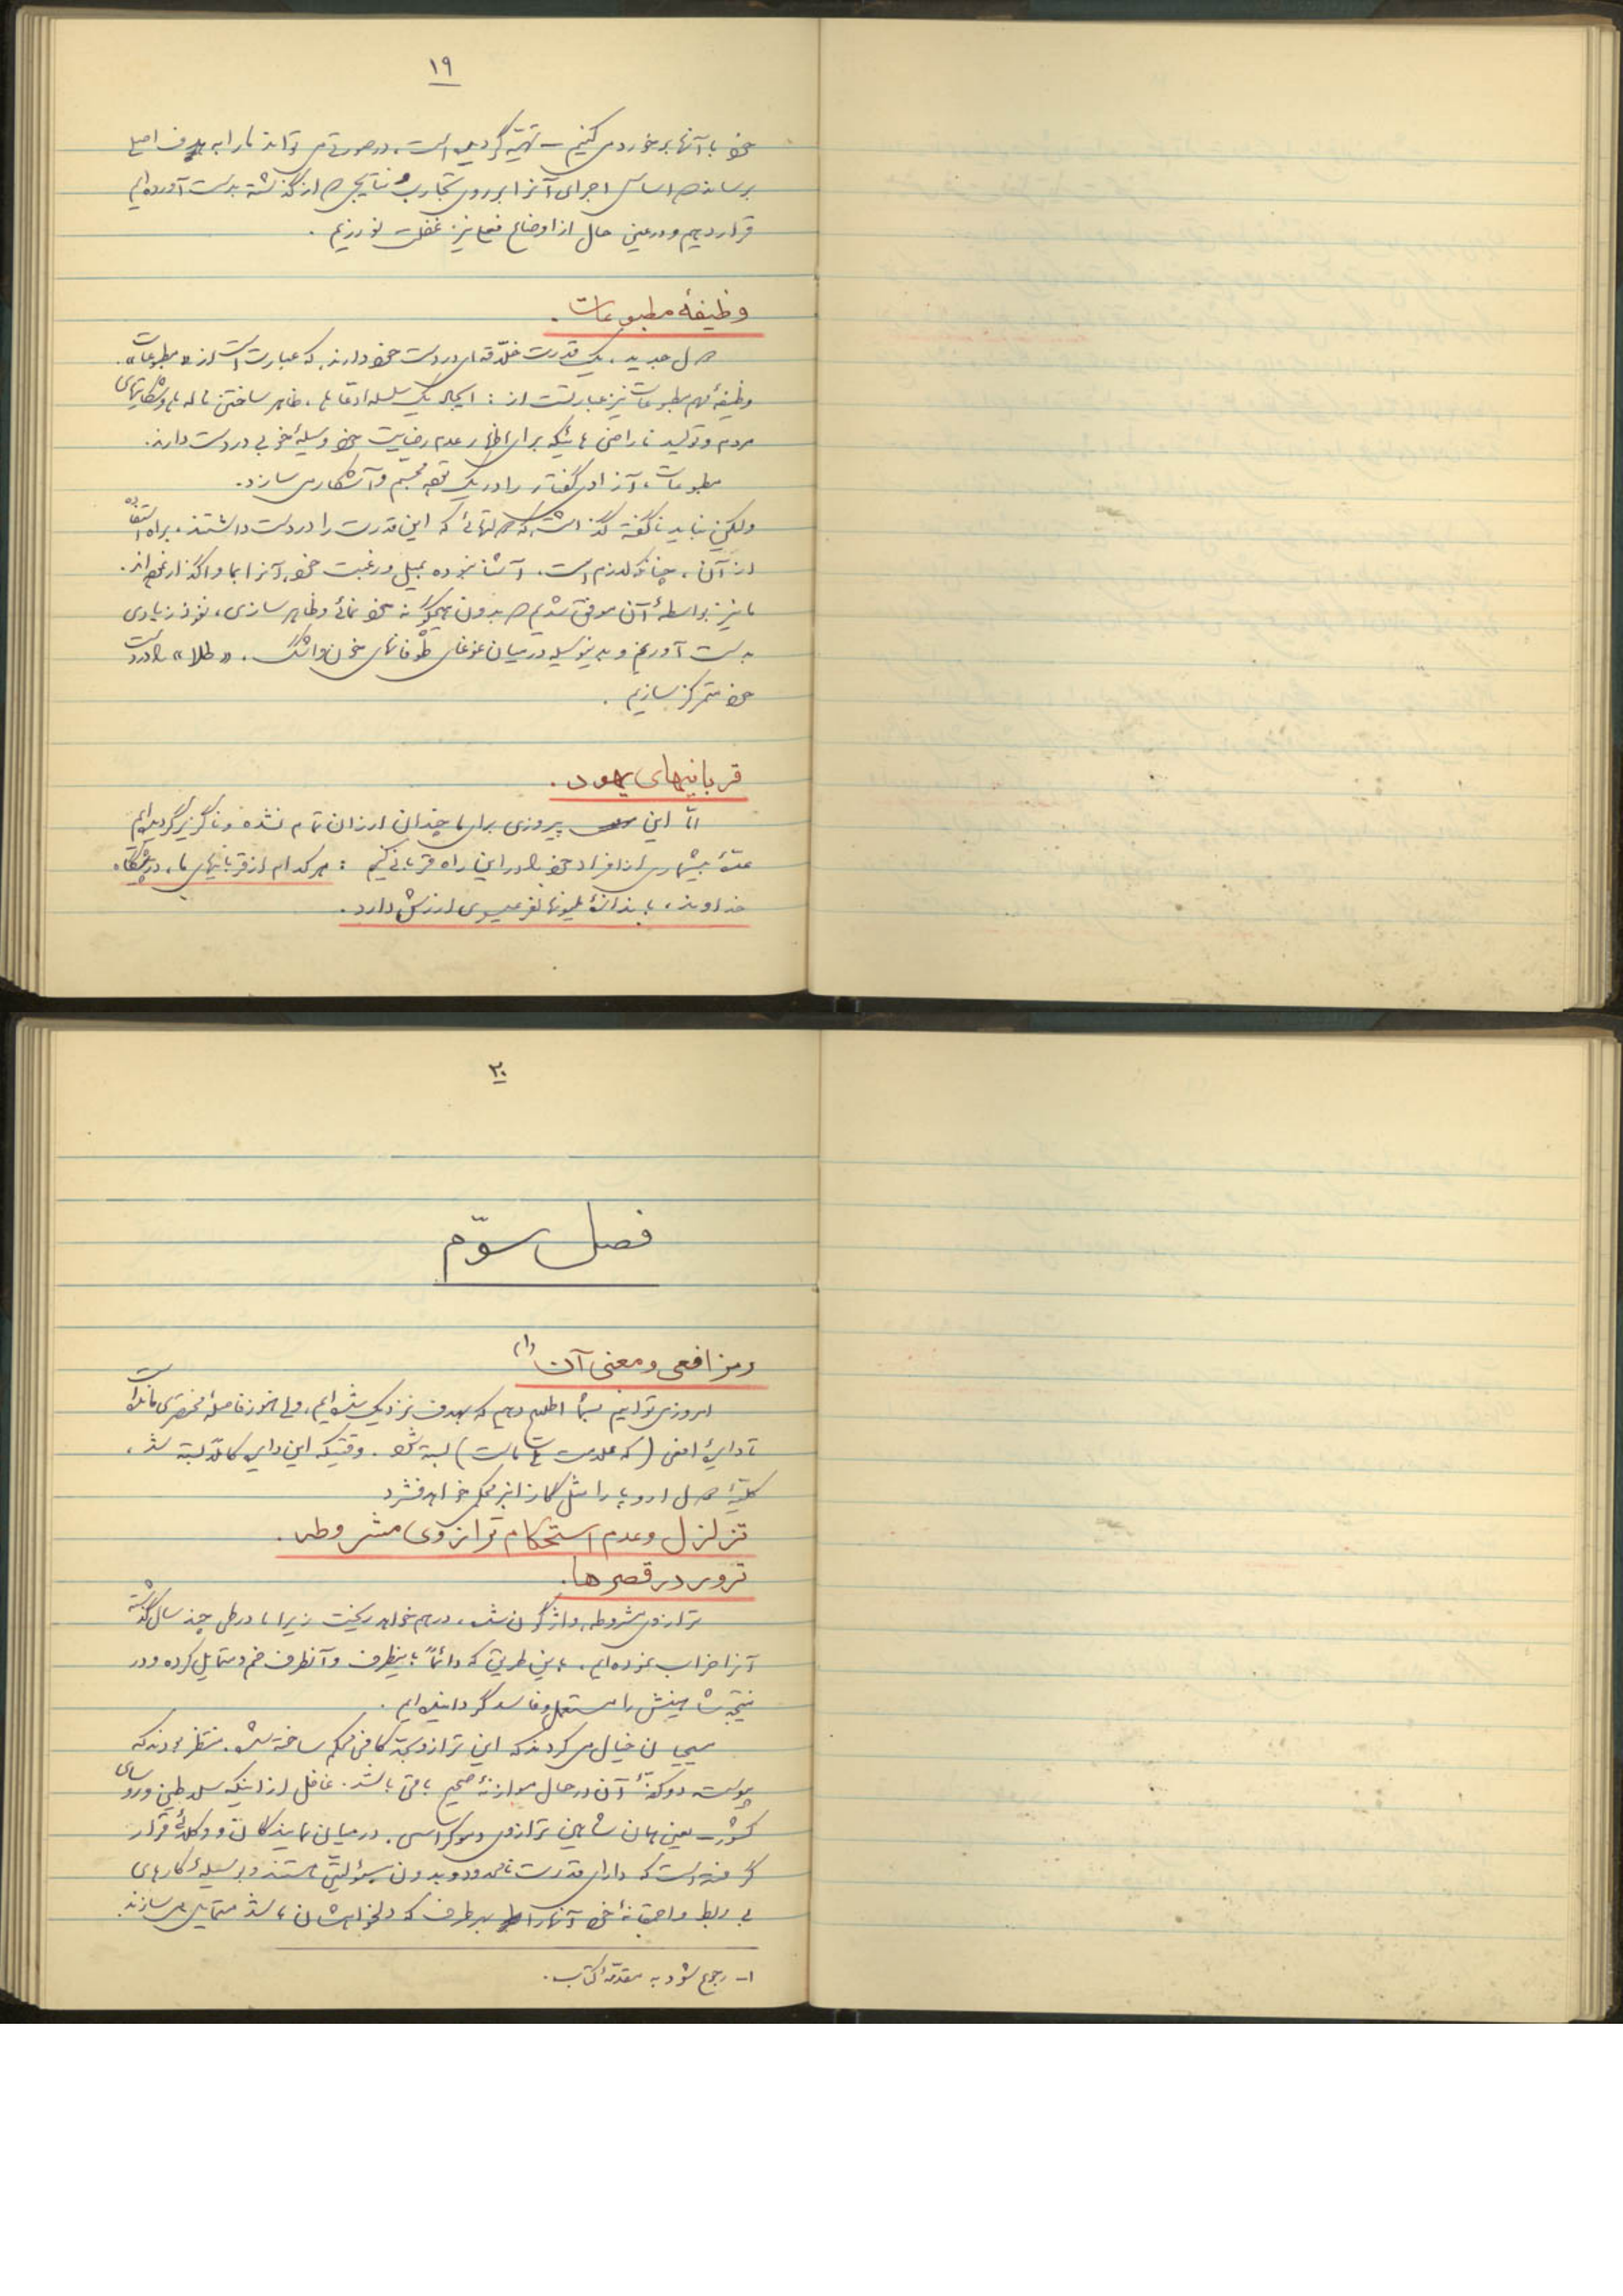 ۱۹
خود با آنها برخورد می کنیم – تهیّه گردیده است، در صورتی می تواند ما را به هدف اصلی
برساند که اساس اجرای آنرا بر روی تجارب و نتایجی که از گذشته بدست آورده ایم
قرار دهیم و در عین حال از اوضاع فعلی نیز غفلت نورزیم .
وظیفهٔ مطبوعات .
دول جدید، یک قدرت خلّاقه ای در دست خود دارند که عبارت است از « مطبوعات ».
وظیفهٔ مهم مطبوعات نیز عبارتست از : ایجاد یک سلسله ادعا ها، ظاهر ساختن ناله ها و شکایتهای
مردم و تولید ناراضی هائیکه برای اظهار عدم رضایت خود وسیلهٔ خوبی در دست دارند.
مطبوعات، آزادی گفتار را در یک قوه مجسّم و آشکار می سازد.
ولیکن نباید ناگفته گذاشت که دولتهائی که این قدرت را در دست داشتند، براه استفاده
از آن، چنانکه لازم است، آشنا نبوده بمیل و رغبت خود، آنرا بما واگذار نموده اند.
ما نیز بواسطهٔ آن موفق شدیم که بدون هیچگونه خود نمائی و ظاهر سازی، نفوذ زیادی
بدست آوریم و بدینوسیله در میان غوغای طوفانهای خون و اشک، « طلا » را در دست
خود متمرکز سازیم .
قربانیهای یهود .
امّا این پیروزی برای ما چندان ارزان تمام نشده و ناگزیر گردیده ایم
عدّهٔ بیشماری از افراد خود را در این راه قربانی کنیم : هر کدام از قربانیهای ما، در پیشگاه
خداوند، باندازهٔ ملیونها نفر عیسوی ارزش دارد.
۲۰
فصل سوّم
رمز افعی و معنی آن (۱)
امروز می توانیم بشما اطلاع دهیم که بهدف نزدیک شده ایم، ولی هنوز فاصلهٔ مختصری مانده است
تا دایرهٔ افعی (که علامت ملت ماست) بسته شود . وقتیکه این دایره کاملاً بسته شد،
کلیهٔ دول اروپا را مثل گازانبر محکم خواهد فشرد
تزلزل و عدم استحکام ترازوی مشروطه .
ترور در قصرها .
ترازوی مشروطه، واژگون شده، درهم خواهد ریخت زیرا ما در طی چند سال گذشته
آنرا خراب نموده ایم، باین طریق که دائماً باینطرف و آنطرف خم و متمایل کرده و در
نتیجه شاهینش را مستعمل و فاسد گردانیده ایم .
مسیحیان خیال می کردند که این ترازو بقدر کافی محکم ساخته شده، منتظر بودند که
پیوسته دو کفّهٔ آن در حال موازنهٔ صحیح باقی باشد. غافل از اینکه سلاطین و روسای
کشور – یعنی همان شاهین ترازوی دموکراسی، در میان نمایندگان و وکلائی قرار
گرفته است که دارای قدرت نامحدود و بدون مسؤلیّتی هستند و بوسیلهٔ کارهای
بی ربط و احمقانهٔ خود آنها را بهر طرف که دلخواهشان باشد متمایل می سازند.
۱- رجوع شود به مقدّمهٔ کتاب.